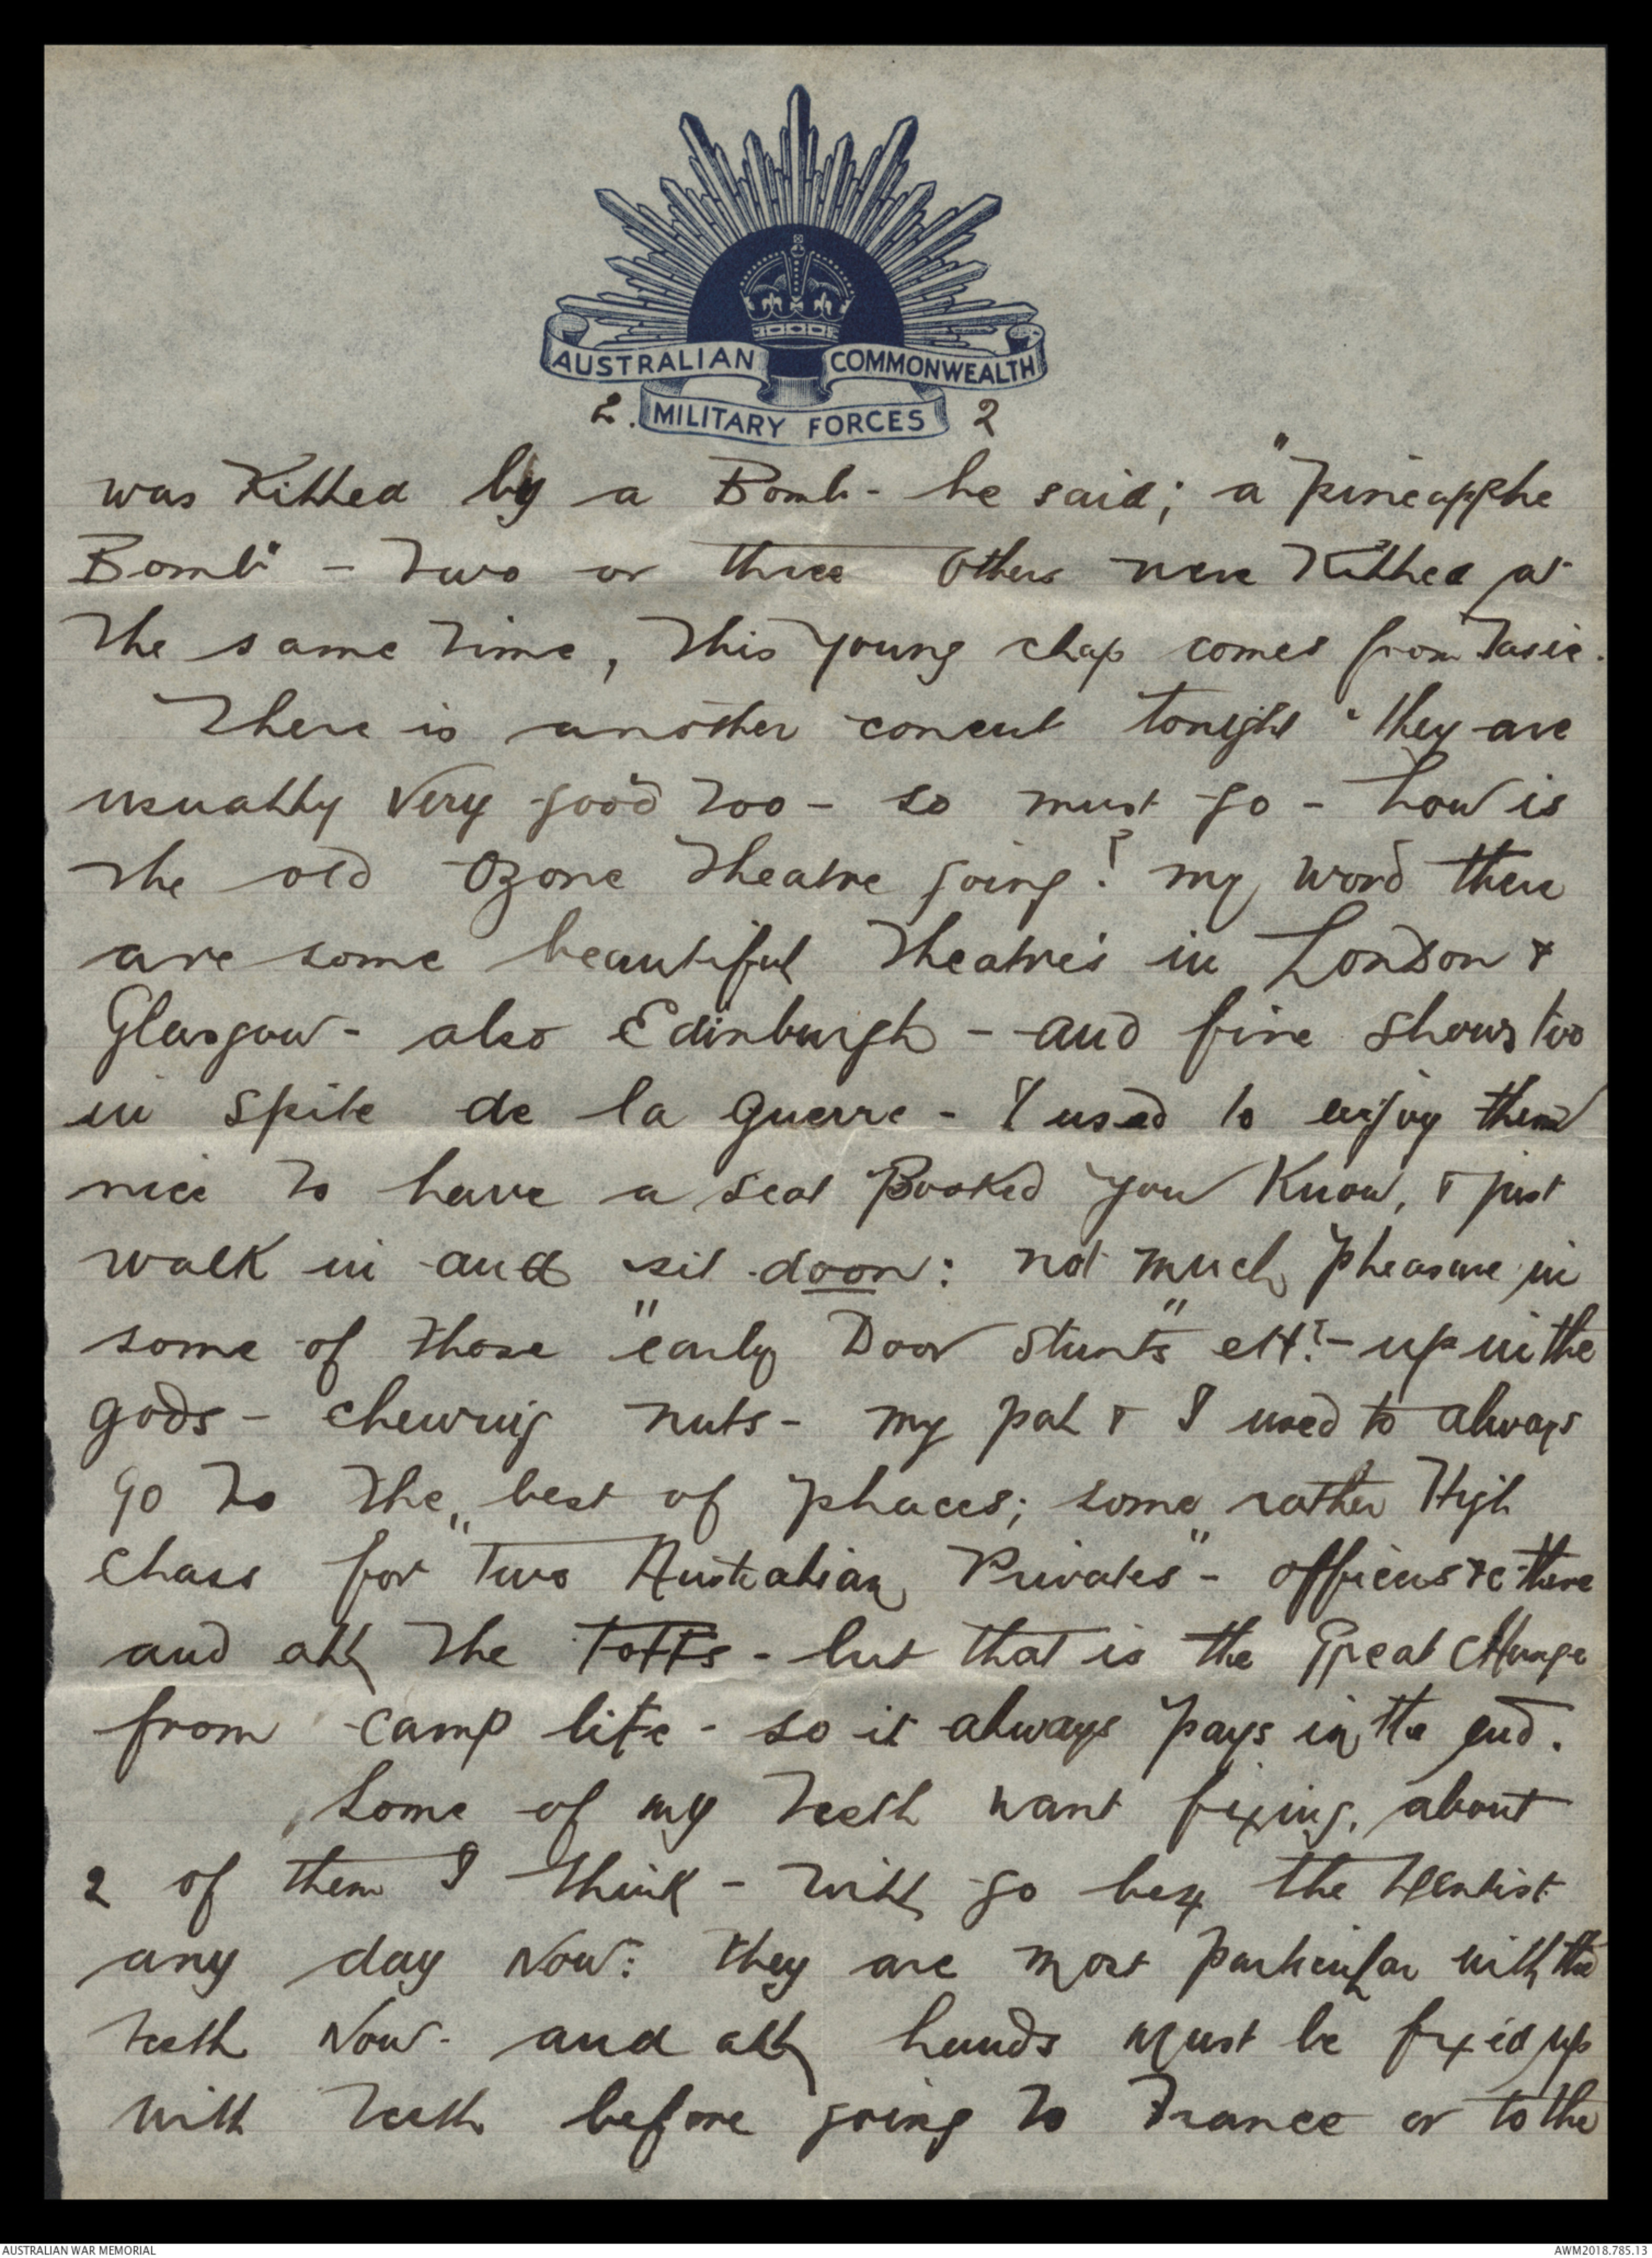 AUSTRALIAN COMMONWEALTH
2. MILITARY FORCES 2
was killed by a Bomb - he said; a "pineapple
Bomb" - two or three others were killed at
the same time, this young chap comes from Tasie.
There is another concert tonight - they are
usually very good too - so must go - how is
the old Ozone Theatre going? my word there
are some beautiful theatres in London &
Glasgow - also Edinburgh - and fine shows too
in spite de la guerre - I used to enjoy them
nice to have a seat Booked you know, & just
walk in and sit doon: not much pleasure in
some of those "early Door stunts" ett? - up in the
gods - chewing nuts - my pal & I used to always
go to the best of places; some rather High
class for "Two Australian Privates" - officers &c there
and all the toffs - but that is the Great Change
from camp life - so it always pays in the end.
Some of my teeth want fixing, about
2 of them I think - will go the Dentist
any day now: they are most particular with the
teeth now - and all hands must be fixed up
with teeth before going to France or to the
AUSTRALIAN WAR MEMORIAL
AWM2018.785.13